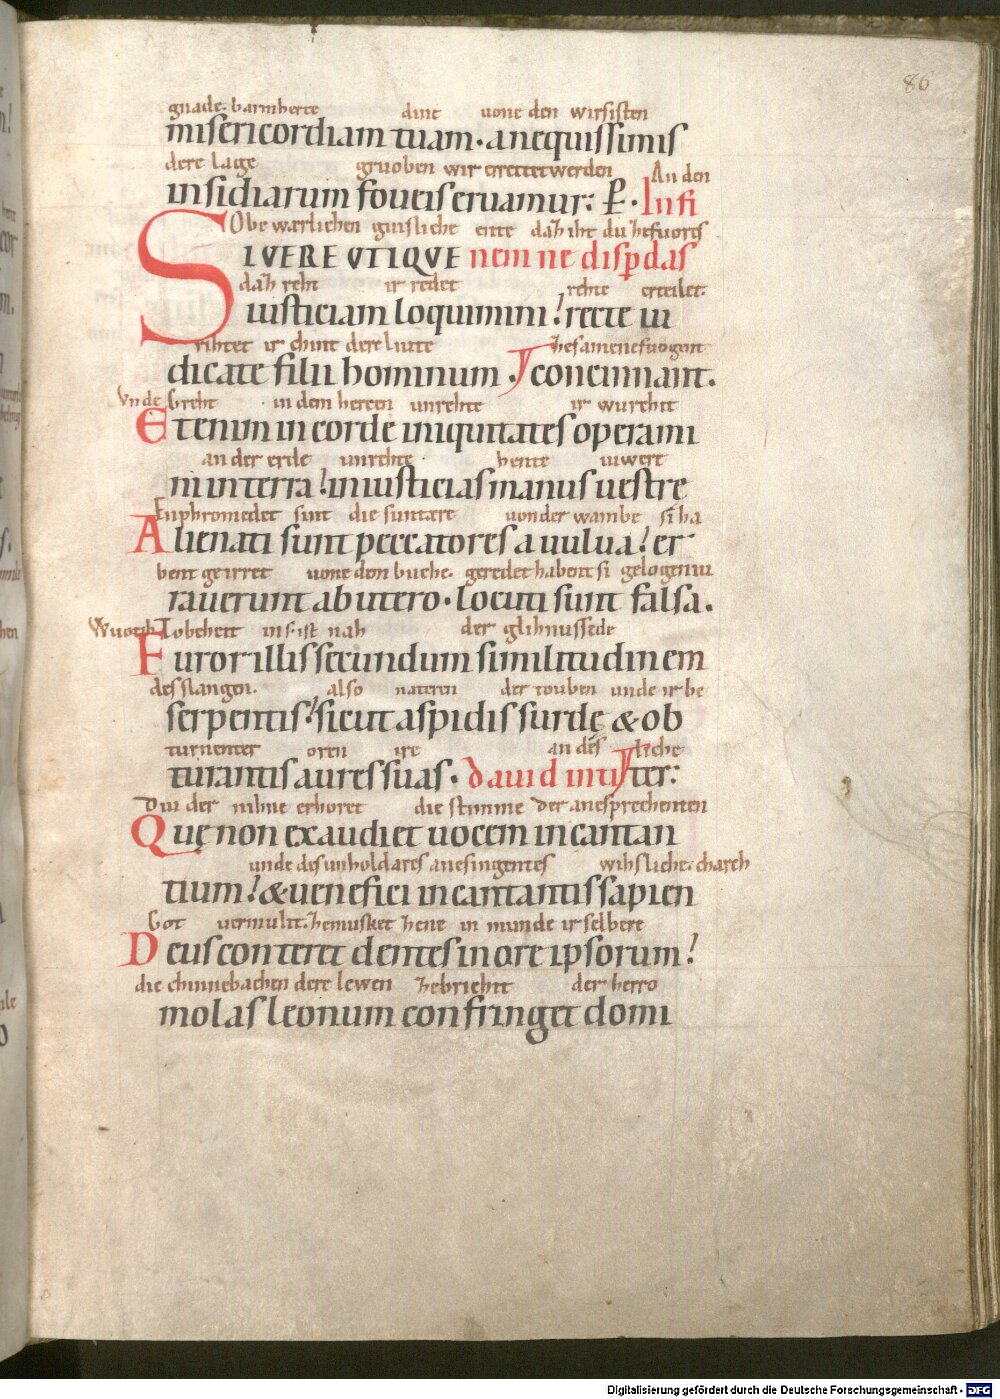 86
gnade. barmherce dine uone den wirsisten
misericordiam tuam. a nequissimis
dere lage gruoben wir errettet werden An den
insidiarum foueis eruamur: P. In fi
Obe warlichen guisliche ente daz iht du zefuores
SI VERE VTIQVE nem ne disp̄das
daz reht ir redet rehte erteilet.
iusticiam loquimini! recte iu
rihtet ir chint dere liute zesamene fuogent
dicate filii hominum. concinnant.
Vnde in dem hercen unrehte ir wurchet
Etenim in corde iniquitates operami
an der erde unrehte hente iuwere
ni in terra! iniusticias manus uestre
Enphromedet sint die suntare uon der wambe si ha
Alienati sunt peccatores a uulua! er
bent geirret uone den buche. geredet habent si gelogeniu
rauerunt ab utero. locuti sunt falsa.
Wuotih Tobeheit in. s. ist nah der glihnussede
Furor illis secundum similitudinem
des slangen. also nateren der touben unde irbe
serpentis! sicut aspidis surdę & ob
turnenter oren ire an des liche
turantis aures suas. dauid in ti ter:
Diu der nihne erhoret die stimme der anesprechenten
Quę non exaudiet uocem incantan
unde des unholdares anesingentes wihsliche. charch
tium! & uenefici incantantis sapien
Got uermulit. zemusket zene in munde ir selbere
Deus conteret dentes in ore ipsorum!
die chinnebachen dere lewen zebrichit der herro
molas leonum confringet domi
Digitalisierung gefördert durch die Deutsche Forschungsgemeinschaft - DFG